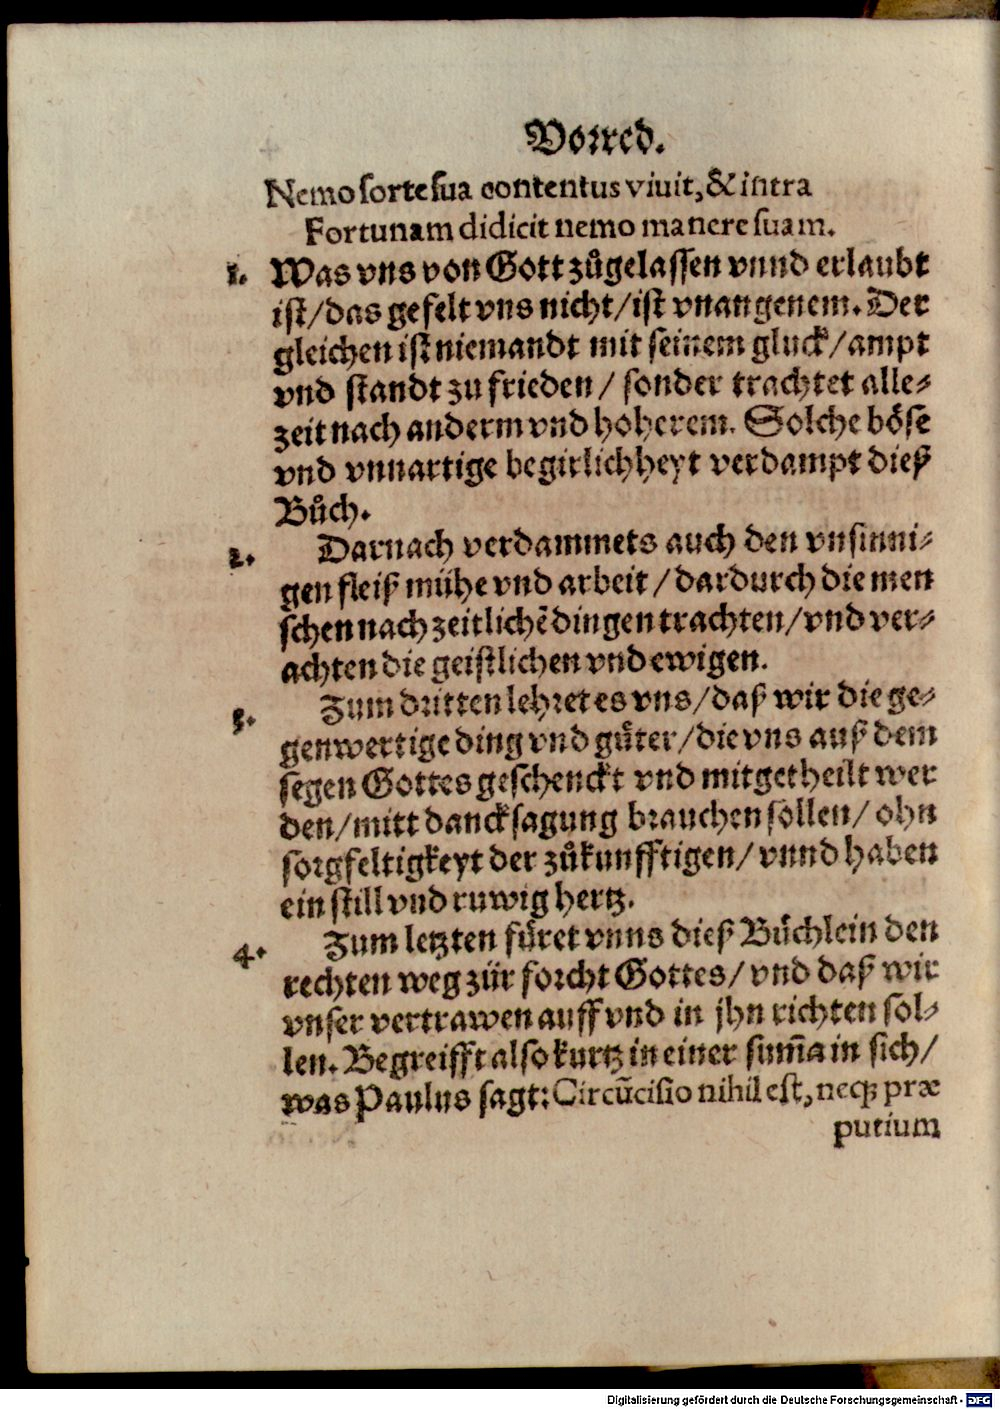 Vorred.
Nemo sorte sua contentus viuit, & intra
Fortunam didicit nemo manere suam.
1. Was vns von Gott zůgelassen vnnd erlaubt
ist/das gefelt vns nicht/ist vnangenem. Der
gleichen ist niemandt mit seinem gluck/ampt
vnd standt zu frieden/ sonder trachtet alle-
zeit nach anderm vnd hoherem. Solche böse
vnd vnnartige begirlichheyt verdampt dieß
Bůch.
2. Darnach verdammets auch den vnsinni-
gen fleiß mühe vnd arbeit/dardurch die men
schen nach zeitlichẽ dingen trachten/vnd ver-
achten die geistlichen vnd ewigen.
3. Zum dritten lehret es vns/daß wir die ge-
genwertige ding vnd gůter/die vns auß dem
segen Gottes geschenckt vnd mitgetheilt wer
den/mitt dancksagung brauchen sollen/ ohn
sorgfeltigkeyt der zůkunfftigen/ vnnd haben
ein still vnd ruwig hertz.
4. Zum letzten fůret vnns dieß Bůchlein den
rechten weg zür forcht Gottes/ vnd daß wir
vnser vertrawen auff vnd in jhn richten sol-
len. Begreifft also kurtz in einer sum̃a in sich/
was Paulus sagt: Circũcisio nihil est, neqꝫ præ
putium
Digitalisierung gefördert durch die Deutsche Forschungsgemeinschaft - DFG